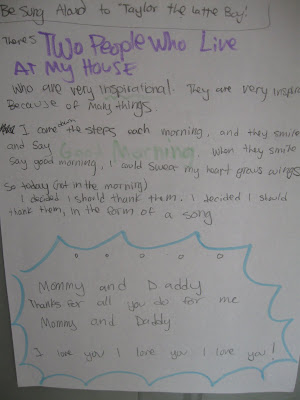 Be Sung Aloud to "Taylor the Latte Boy".
There's Two People Who Live
At My House
Who are very inspirational. They are very inspira
Because of Many things.
I come down the steps each morning, and they smile
and Say Good Morning. When they smile
Say good morning, I could swear my heart grows wings
So today (not in the morning)
I decided I should thank them. I decided I should
thank them, in the form of a song
Mommy and Daddy
Thanks for all you do for me
Mommy and Daddy
I love you I love you I love you!